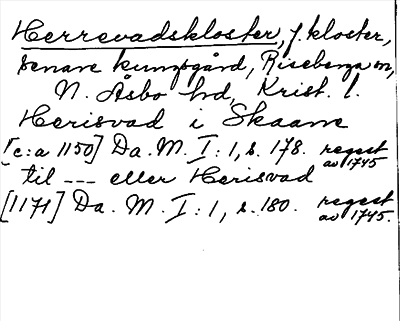 Herrevadskloster, f. kloster,
senare kungsgård, Riseberga sn,
N. Åsbo hd, Krist. l.
Herisvad i Skaane
[c:a 1150] Da. M. I: 1, s. 178. regest av 1745
til --- eller Herisvad
[1171] Da. M. I: 1, s. 180. regest av 1745.